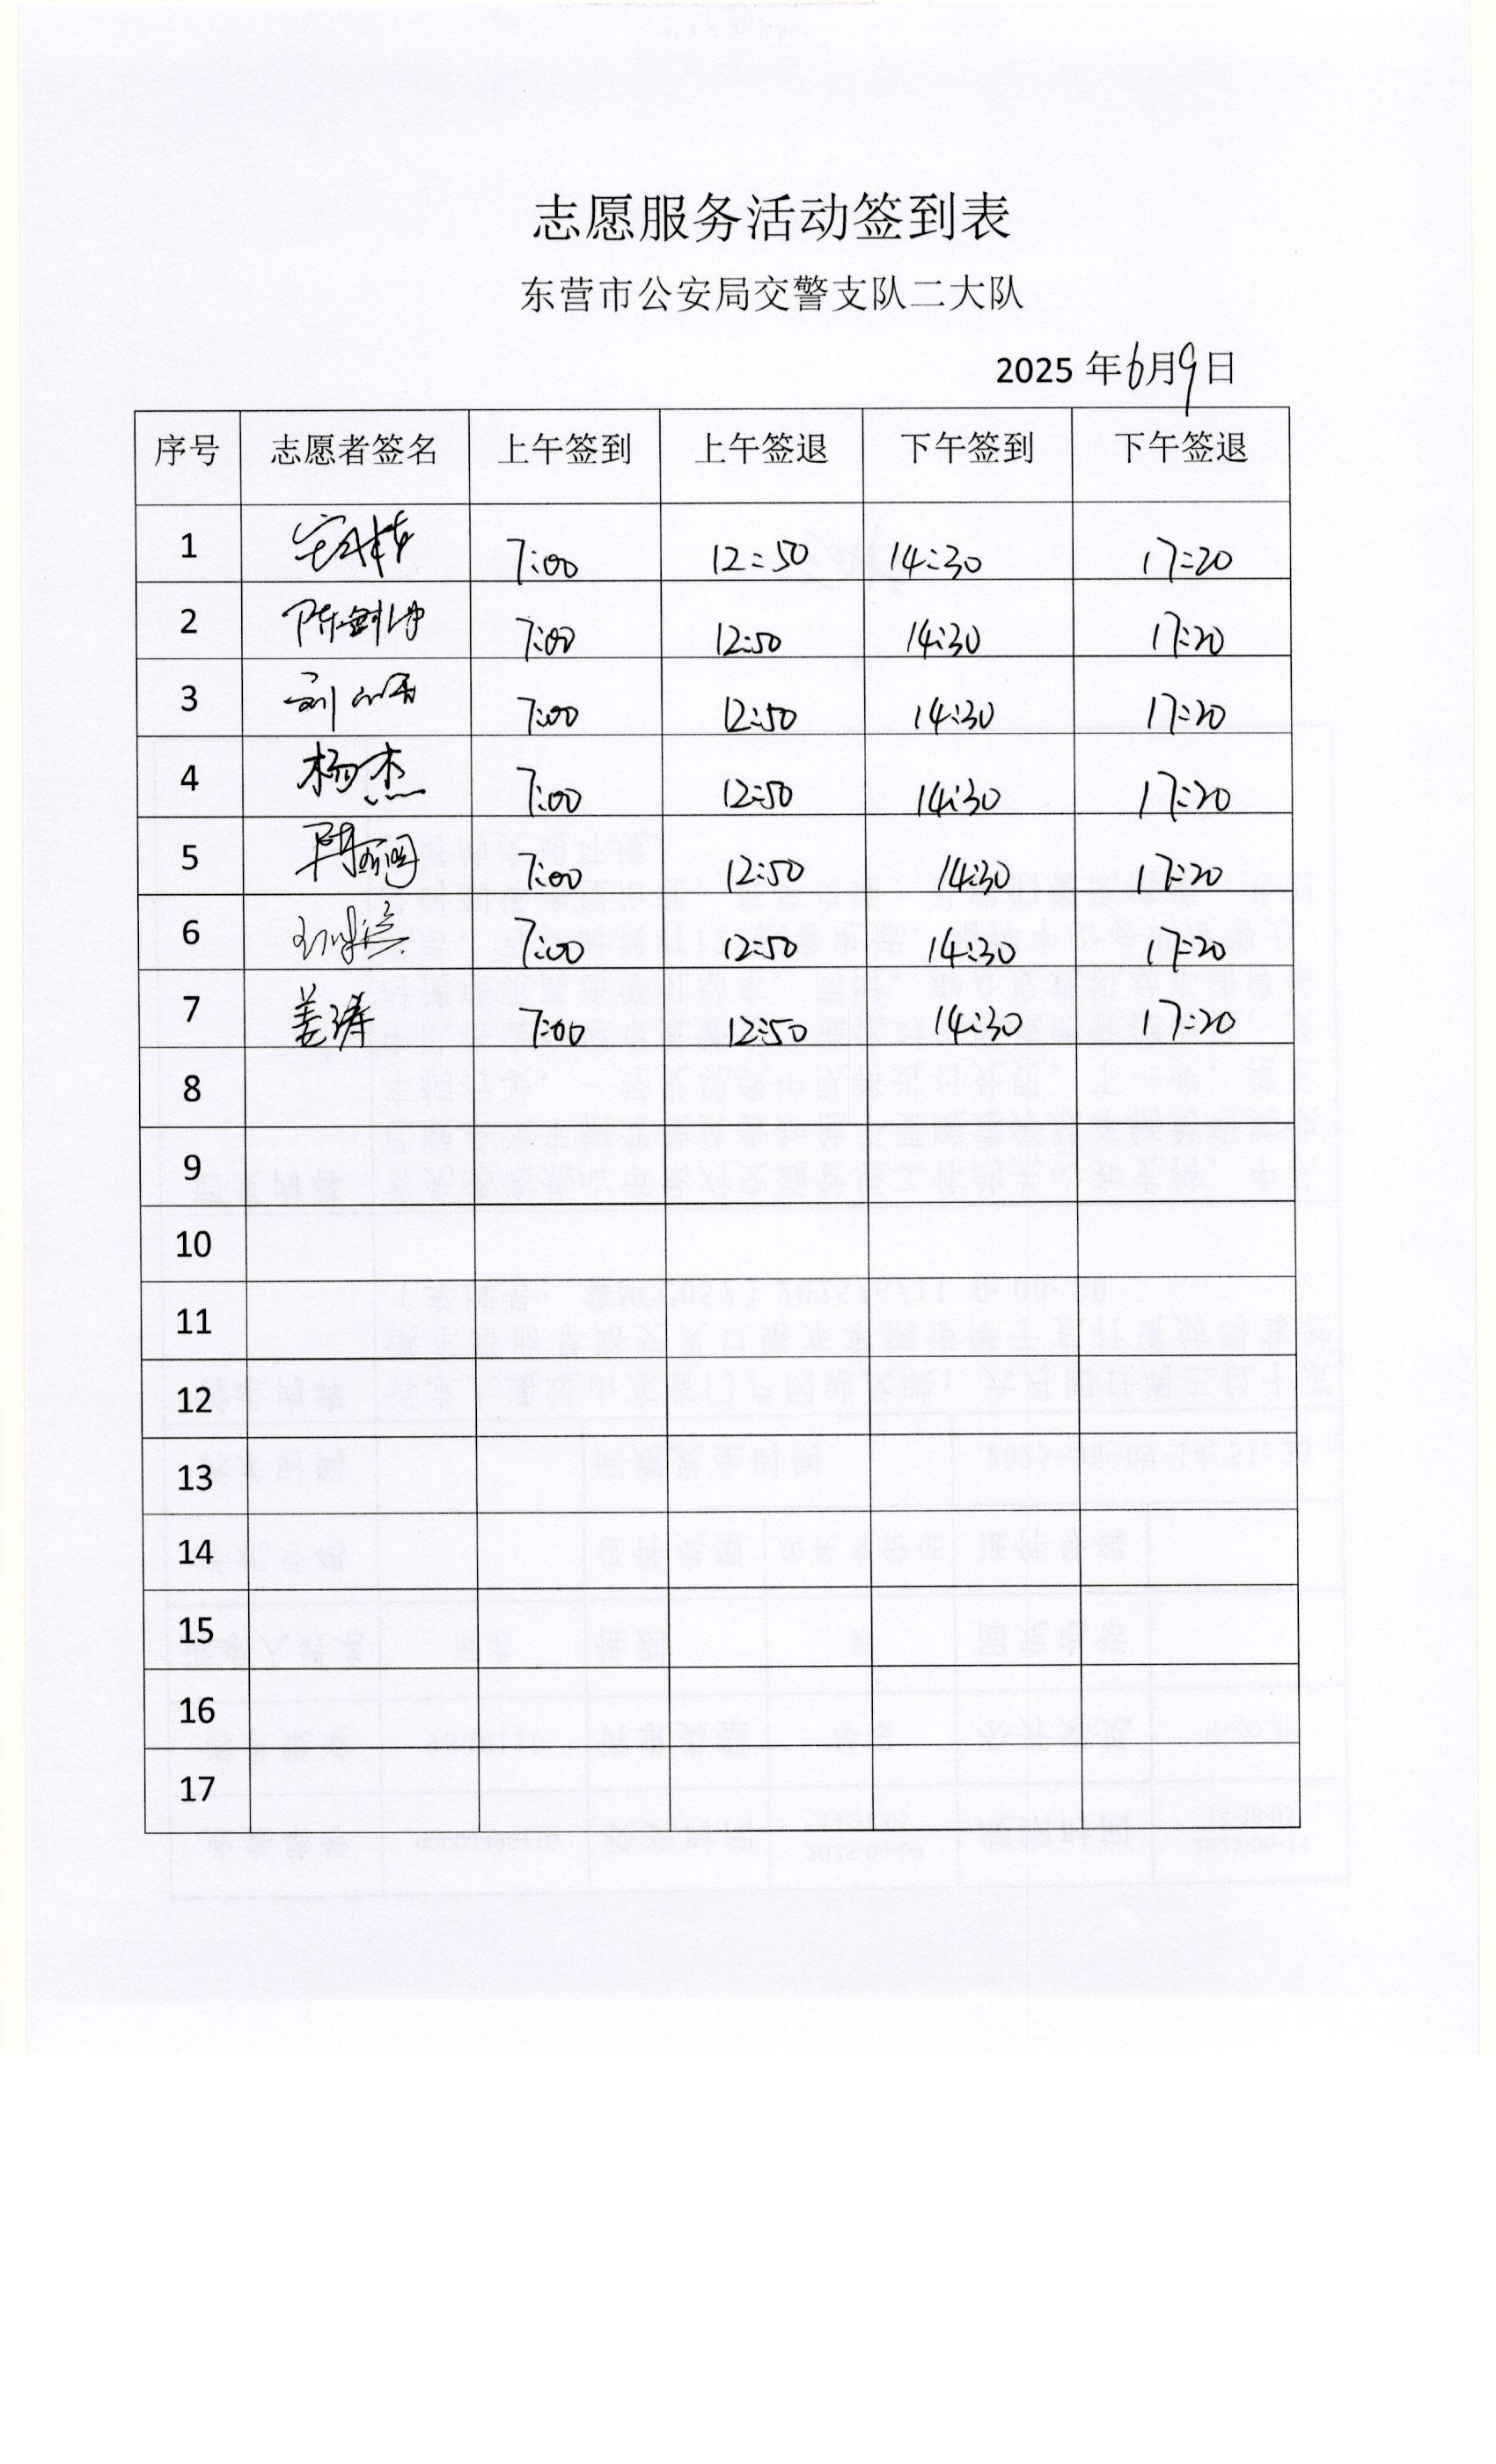 志愿服务活动签到表
东营市公安局交警支队二大队
2025 年6月9日
序号 志愿者签名 上午签到 上午签退 下午签到 下午签退
1 7:00 12:50 14:30 17:20
2 陈剑坤 7:00 12:50 14:30 17:20
3 刘 7:00 12:50 14:30 17:20
4 杨杰 7:00 12:50 14:30 17:20
5 7:00 12:50 14:30 17:20
6 7:00 12:50 14:30 17:20
7 姜涛 7:00 12:50 14:30 17:20
8
9
10
11
12
13
14
15
16
17